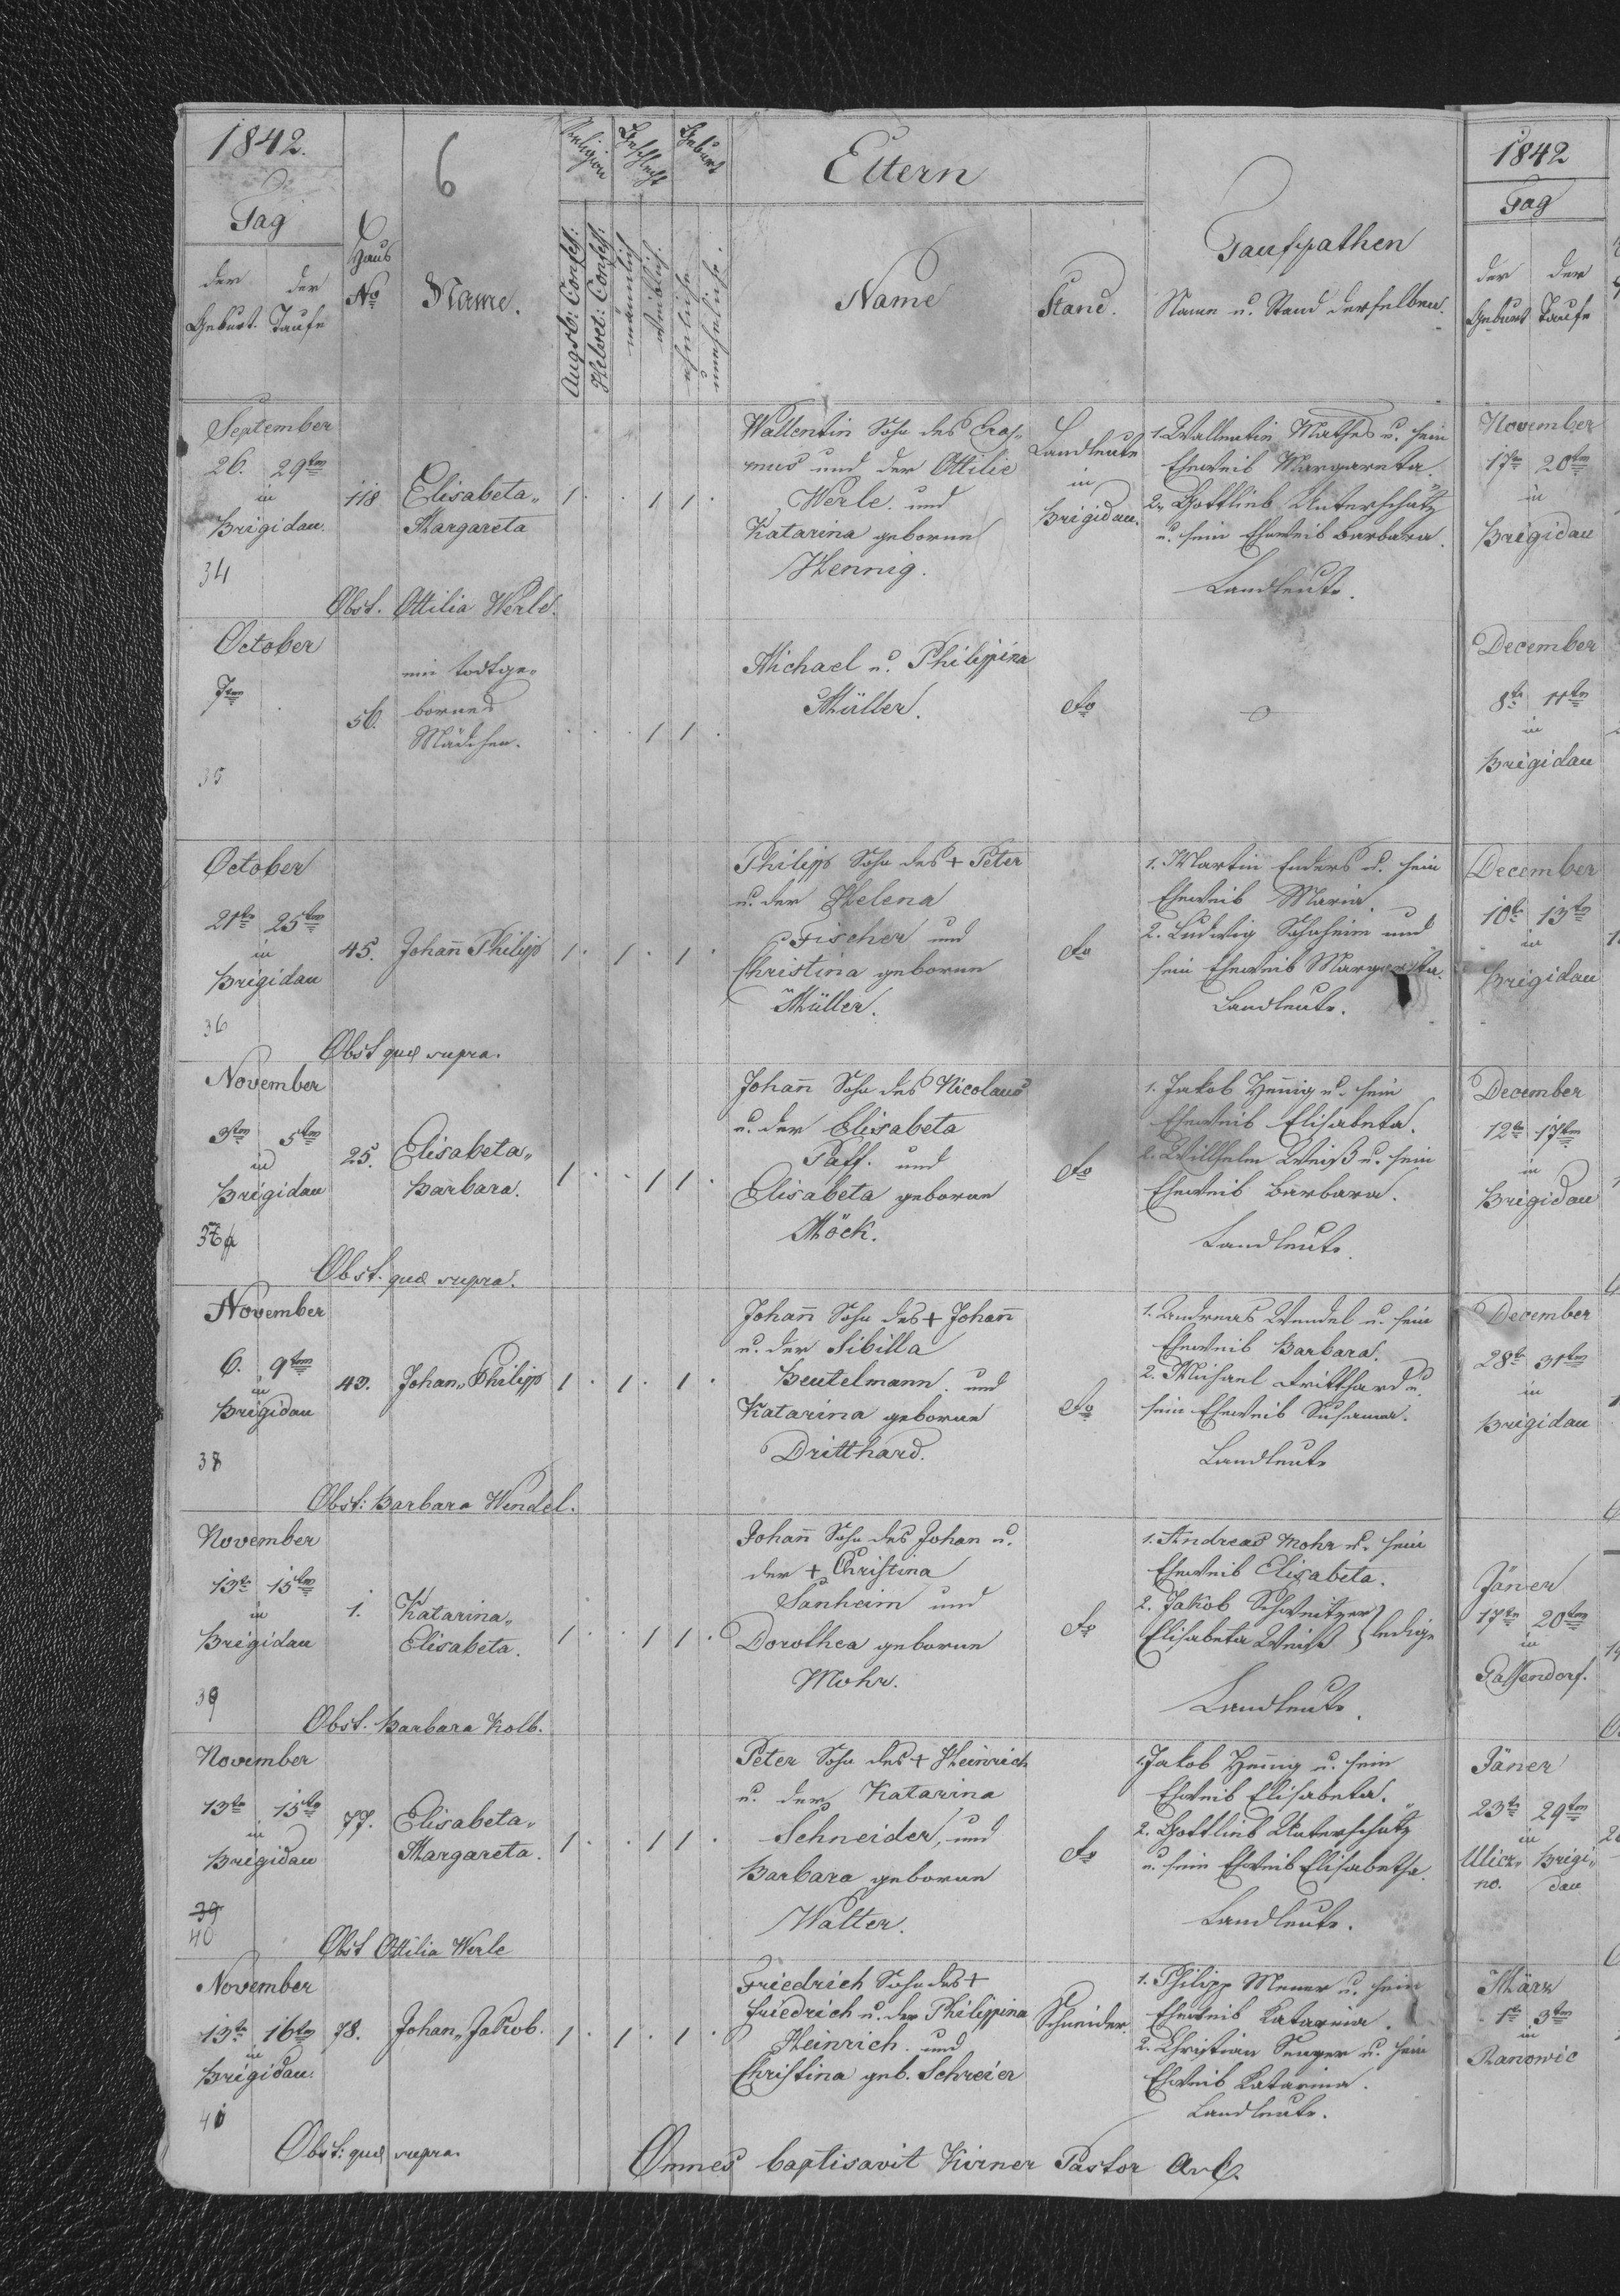 1842.
6
Religion
Geschlecht
Geburt
Eltern
Tag
Haus
No
Name.
der der
Geburt. Taufe
Augsb: Confes:
Helvet: Confes:
männlich
weiblich.
eheliche
uneheliche.
Name
Stand.
Taufpathen
Name u. Stand derselben.
September
26. 29ten
in
Brigidau.
34
118
Elisabeta„
Margareta
1 . . 1 1 .
Wallentin Sohn des Eras„
mus und der Ottilie
Werle. und
Katarina geborne
Hennig.
Landleute
in
Brigidau.
1. Wallentin Mathes u. sein
Eheweib Margareta.
2. Gottlieb Unterschütz
u. sein Eheweib Barbara.
Landleute.
Obst. Ottilia Werle.
October
7ten
35
56.
ein todtge„
bornes
Mädchen.
. . . 1 1 .
Michael u. Philippina
Müller.
do
October
21te 25ten
in
Brigidau
36
45.
Johan̄ Philipp
1 . 1 . 1 .
Philipp Sohn des + Peter
u. der Helena
Fischer und
Christina geborne
Müller.
do
1. Martin Enders u. sein
Eheweib Maria.
2. Ludwig Sohnheim und
sein Eheweib Margareta.
Landleute.
Obst quæ supra.
November
3ten 5ten
in
Brigidau
25.
Elisabeta„
Barbara.
1 . . 1 1 .
Johan̄ Sohn des Nicolaus
u. der Elisabeta
Paff. und
Elisabeta geborne
Möck.
do
1. Jakob Hen̄ig u. sein
Eheweib Elisabeta.
2. Willhelm Weiß u. sein
Eheweib Barbara.
Landleute.
Obst. quæ supra.
November
6. 9ten
in
Brigidau
38
43.
Johan„ Philipp
1 . 1 . 1 .
Johan̄ Sohn des + Johan̄
u. der Sibilla
Beutelmann. und
Katarina geborne
Dritthard.
do
1. Andreas Wendel u. sein
Eheweib Barbara.
2. Michael Dritthard u.
sein Eheweib Susanna.
Landleute
Obst: Barbara Wendel.
November
13te 15ten
in
Brigidau
39
1.
Katarina„
Elisabeta.
1 . . 1 1 .
Johan̄ Sohn des Johan u.
der + Christina
Sanheim und
Dorothea geborne
Mohr.
do
1. Andreas Mohr u. sein
Eheweib Elisabeta.
2. Jakob Schweitzer
Elisabeta Weiß } ledige
Landleute.
Obst. Barbara Kolb.
November
13te 15te
in
Brigidau
39
40
77.
Elisabeta„
Margareta.
1 . . 1 1 .
Peter Sohn des + Heinrich
u. der Katarina
Schneider, und
Barbara geborne
Walter.
do
1. Jakob Hen̄ig u. sein
Eheweib Elisabeta.
2. Gottlieb Unterschütz
u. sein Eheweib Elisabetha.
Landleute.
Obst Ottilia Werle
November
13te 16te
in
Brigidau.
41
78.
Johan„ Jakob.
1 . 1 . 1 .
Friedrich Sohn des +
Friedrich u. der Philippina
Heinrich. und
Christina geb. Schreier
Schneider.
1. Philipp u. sein
Eheweib Katarina.
2. Christian u. sein
Eheweib Katarina.
Landleute.
Obst: quæ supra.
Omnes baptisavit Kirner Pastor A.C.
1842
Tag
der der
Geburt Taufe
November
17te 20ten
in
Brigidau
December
8te 11ten
in
Brigidau
December
10te 13ten
in
Brigidau
December
12te 17ten
in
Brigidau
December
28te 31ten
in
Brigidau
Jäner
17te 20ten
in
Gassendorf.
Jäner
23te 29ten
in
Ulicz„ Brigi„
no. dau
März
1te 3ten
in
Ranowic